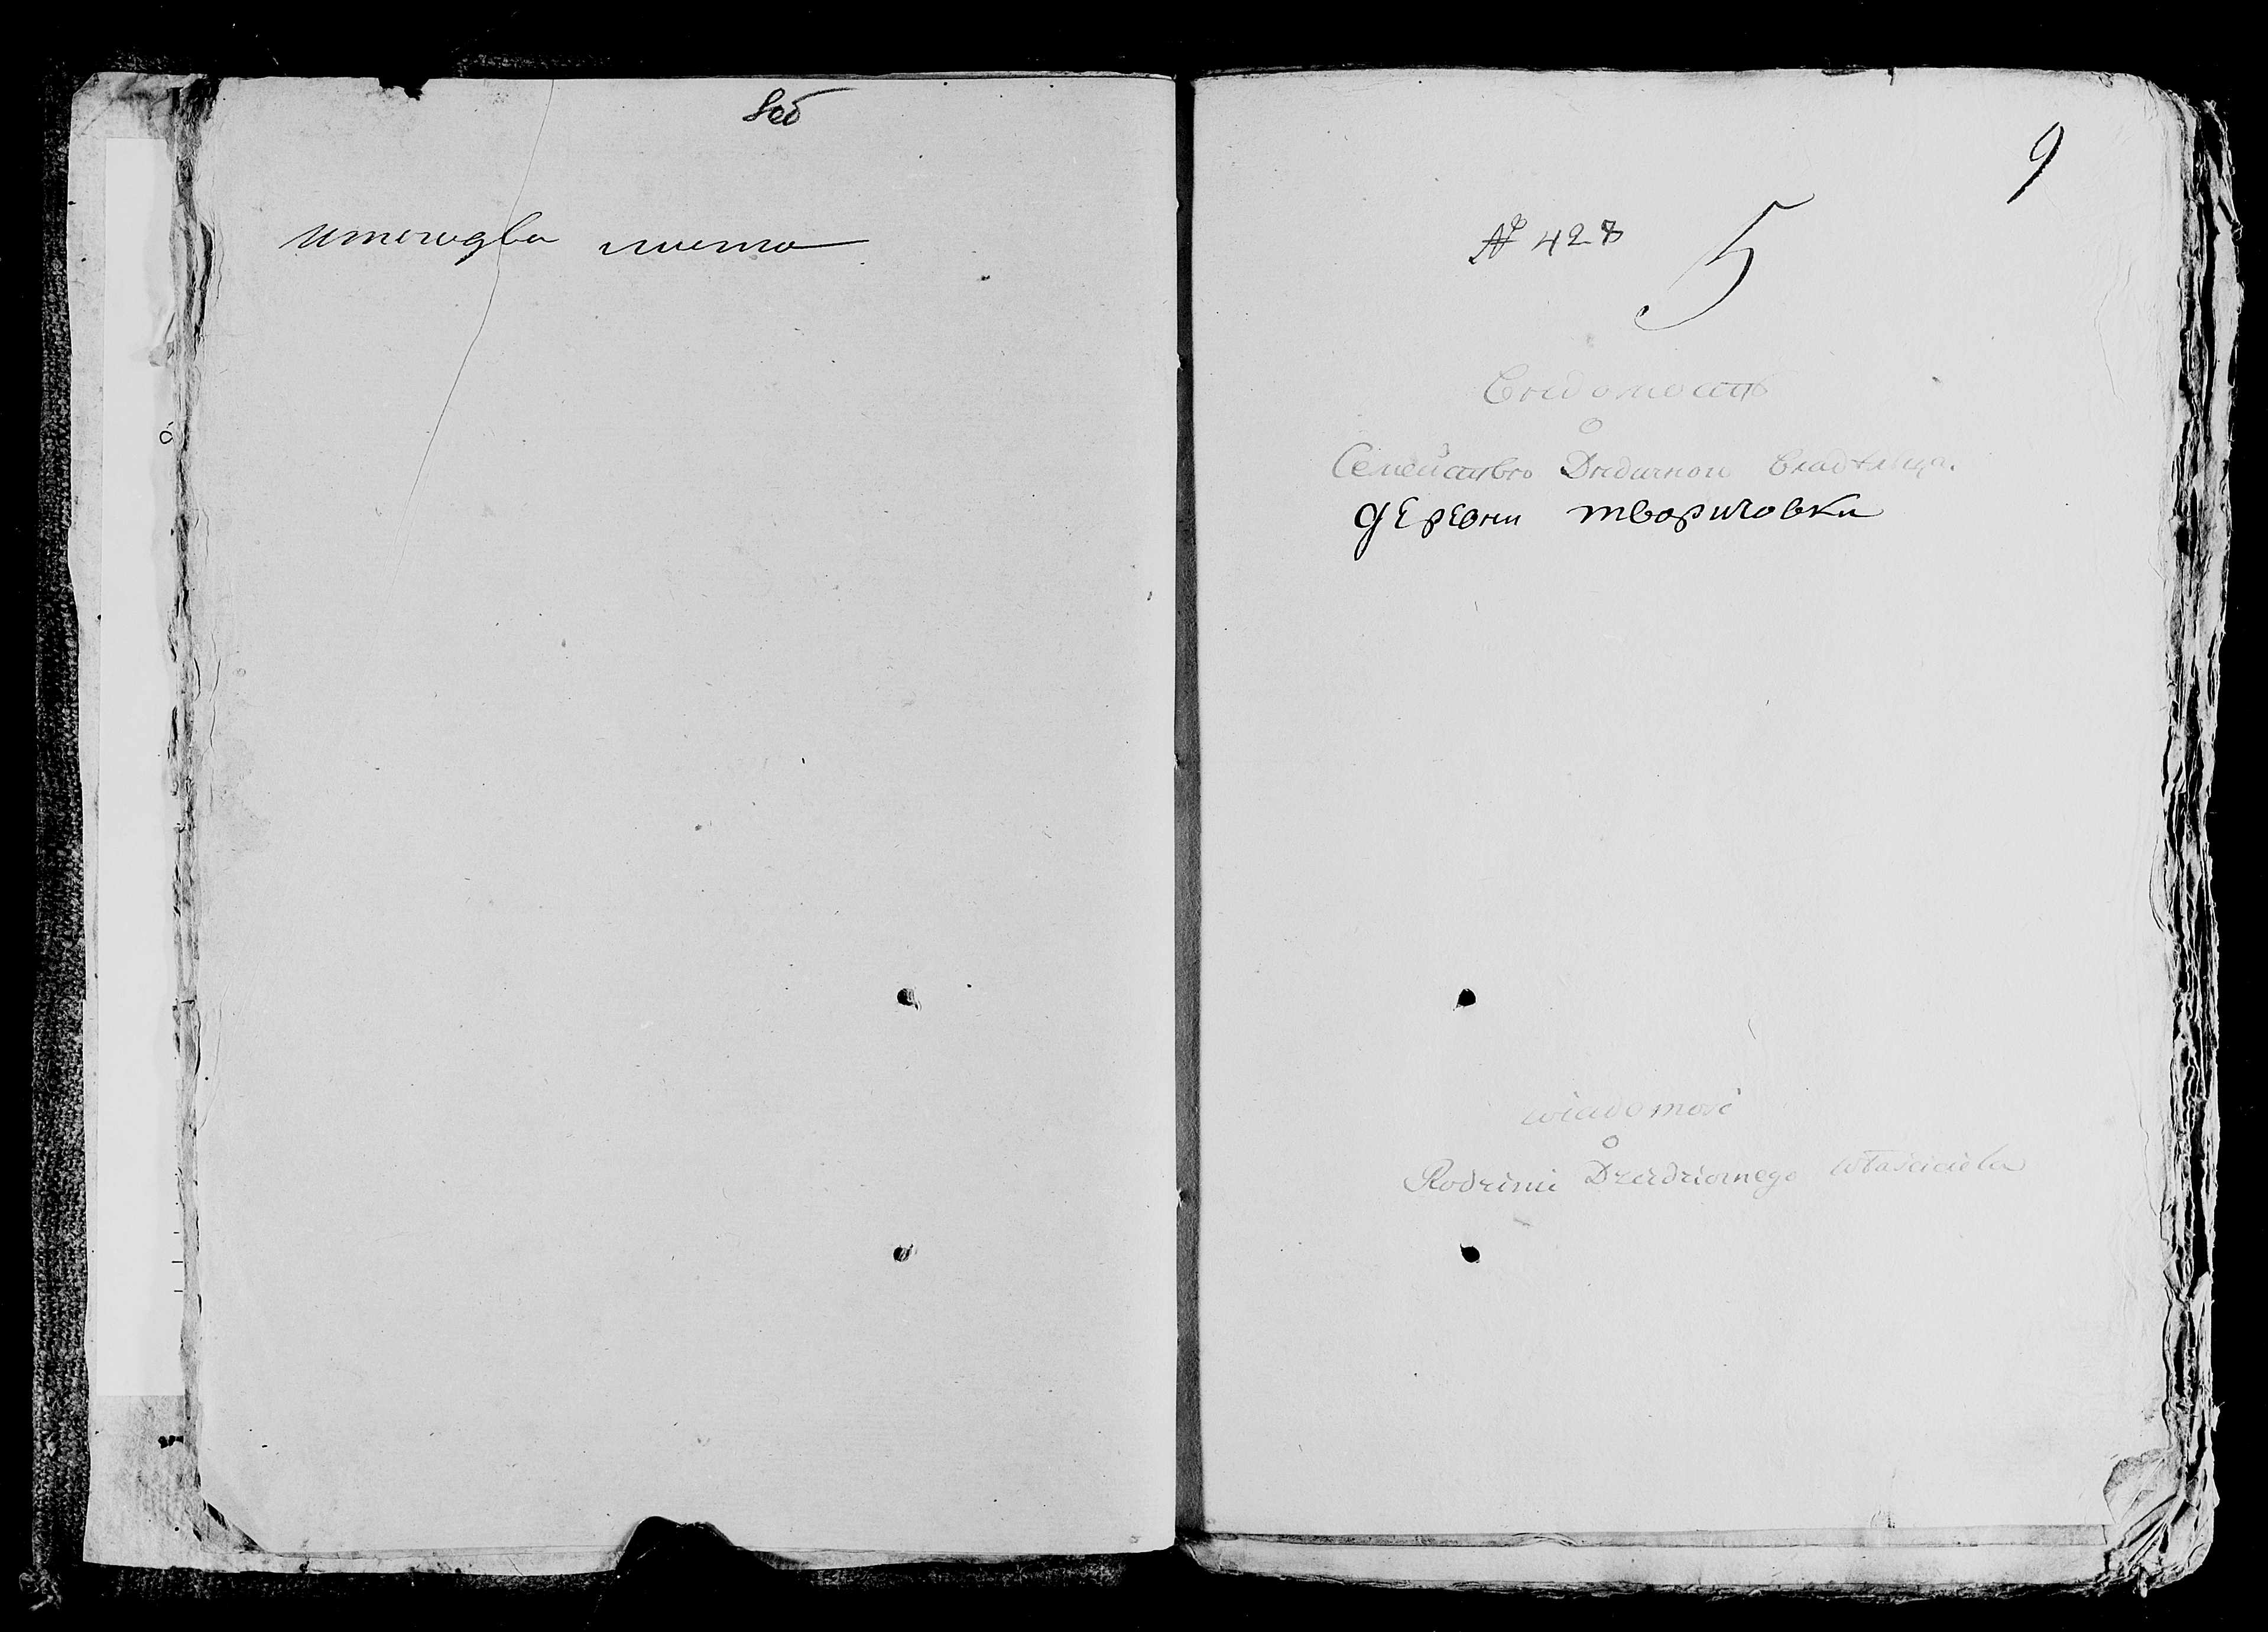 8об
итого два листа
9
№ 428
5
Ведомость
о
Семейство Дедичного Владельца.
деревни творичовки
wiadomość
o
Rodzinie Dziedzicznego Właściciela